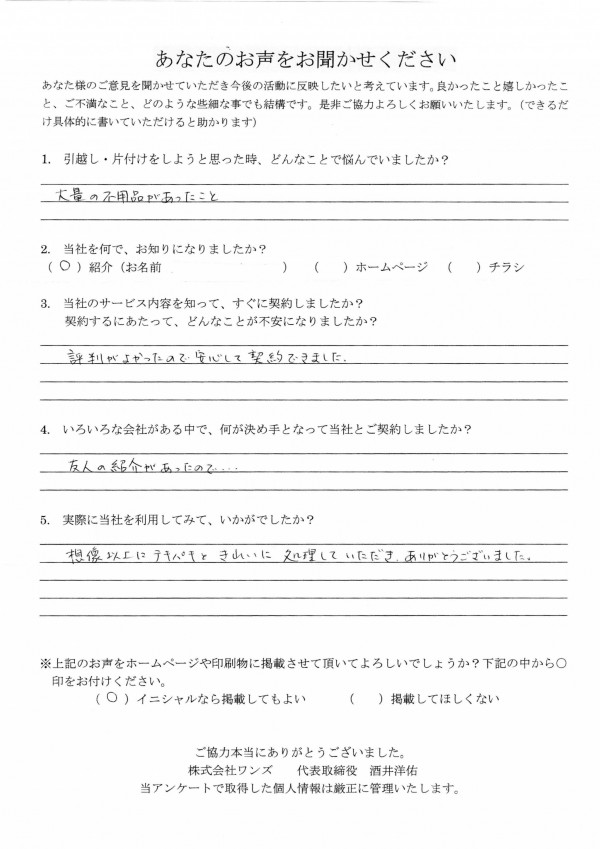 あなたのお声をお聞かせください
あなた様のご意見を聞かせていただき今後の活動に反映したいと考えています。良かったこと嬉しかったこ
と、ご不満なこと、どのような些細な事でも結構です。是非ご協力よろしくお願いいたします。(できるだ
け具体的に書いていただけると助かります)
1. 引越し・片付けをしようと思った時、どんなことで悩んでいましたか？
大量の不用品があったこと
2. 当社を何で、お知りになりましたか？
(○)紹介(お名前 ) ( )ホームページ ( )チラシ
3. 当社のサービス内容を知って、すぐに契約しましたか？
契約するにあたって、どんなことが不安になりましたか？
評判がよかったので安心して契約できました.
4. いろいろな会社がある中で、何が決め手となって当社とご契約しましたか？
友人の紹介があったので・・・
5. 実際に当社を利用してみて、いかがでしたか？
想像以上にテキパキときれいに処理していただき、ありがとうございました。
※上記のお声をホームページや印刷物に掲載させて頂いてよろしいでしょうか？下記の中から○
印をお付けください。
(○)イニシャルなら掲載してもよい ( )掲載してほしくない
ご協力本当にありがとうございました。
株式会社ワンズ 代表取締役 酒井洋佑
当アンケートで取得した個人情報は厳正に管理いたします。